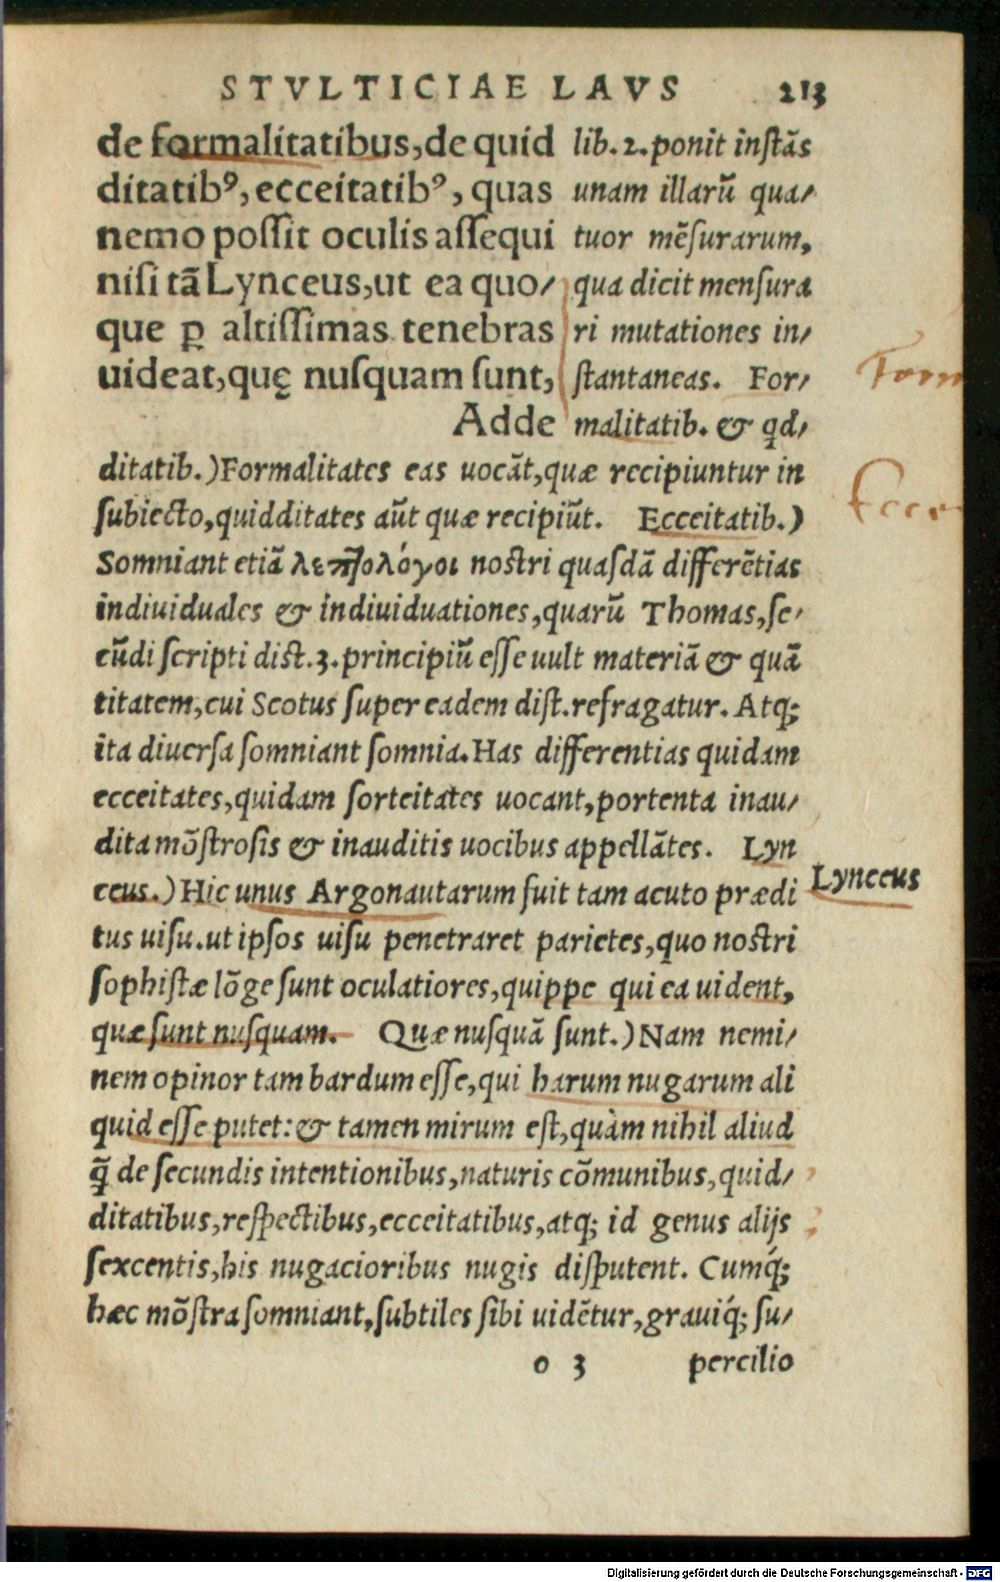 STVLTICIAE LAVS 213
de formalitatibus, de quid
ditatibꝰ, ecceitatibꝰ, quas
nemo possit oculis assequi
nisi tā Lynceus, ut ea quo/
que ꝑ altissimas tenebras
uideat, quę nusquam sunt,
Adde
lib. 2. ponit instās
unam illarū qua/
tuor mēsurarum,
qua dicit mensura
ri mutationes in/
stantaneas. For/
malitatib. & qd/
ditatib.) Formalitates eas uocāt, quæ recipiuntur in
subiecto, quidditates aūt quæ recipiūt. Ecceitatib.)
Somniant etiā λεπτολόγοι nostri quasdā differētias
indiuiduales & indiuiduationes, quarū Thomas, se/
cūdi scripti dist. 3. principiū esse uult materiā & quā
titatem, cui Scotus super eadem dist. refragatur. Atq;
ita diuersa somniant somnia. Has differentias quidam
ecceitates, quidam sorteitates uocant, portenta inau/
dita mōstrosis & inauditis uocibus appellātes. Lyn
ceus.) Hic unus Argonautarum fuit tam acuto prædi
tus uisu. ut ipsos uisu penetraret parietes, quo nostri
sophistæ lōge sunt oculatiores, quippe qui ea uident,
quæ sunt nusquam. Quæ nusquā sunt.) Nam nemi/
nem opinor tam bardum esse, qui harum nugarum ali
quid esse putet: & tamen mirum est, quàm nihil aliud
q̄ de secundis intentionibus, naturis cōmunibus, quid/
ditatibus, respectibus, ecceitatibus, atq; id genus alijs
sexcentis, his nugacioribus nugis disputent. Cumq́;
hæc mōstra somniant, subtiles sibi uidētur, grauiq́; su/
o 3 percilio
Form
Eccei
Lynceus
Digitalisierung gefördert durch die Deutsche Forschungsgemeinschaft - DFG